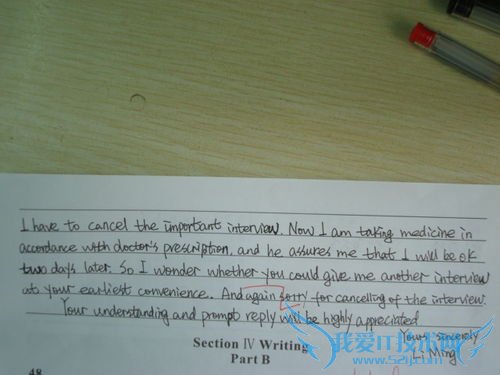 I have to cancel the important interview. Now I am taking medicine in
accordance with doctor's prescription, and he assures me that I will be ok
two days later. So I wonder whether you could give me another interview
at your earliest convenience. And again sorry for cancelling of the interview.
Your understanding and prompt reply will be highly appreciated.
Yours sincerely
Li Ming
Section IV Writing
Part B
48
我爱IT技术网
www.52ij.com